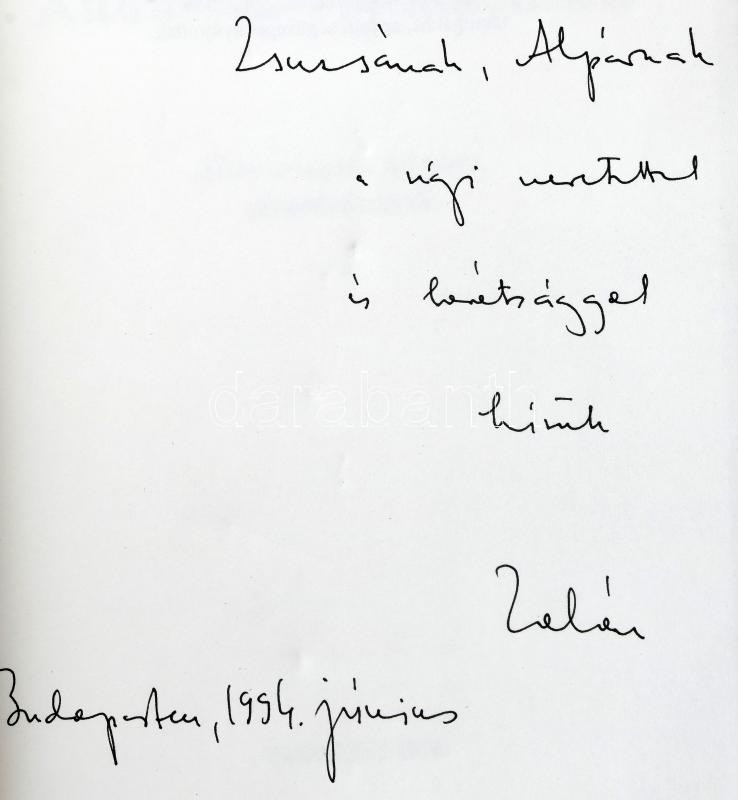 Zsuzsának, Alpárnak
a régi szeretettel
és barátsággal
hívük
Zalán
Budapesten, 1994. június
darabanth